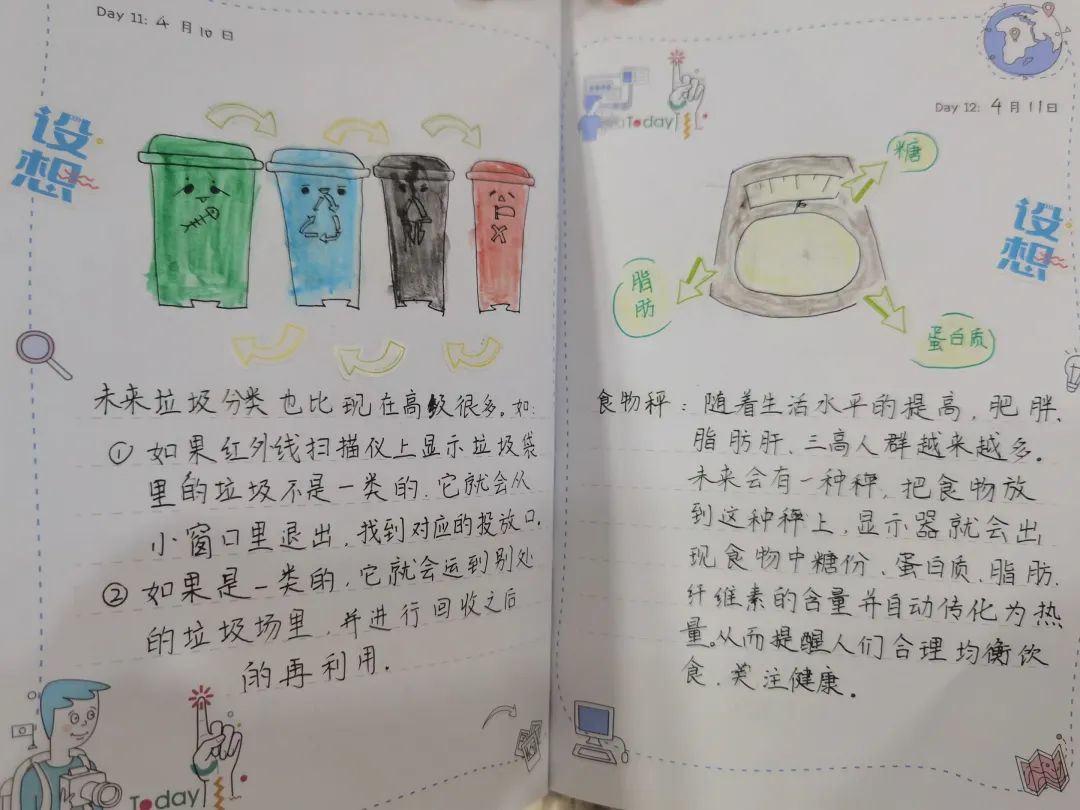 Day 11: 4 月 10 日
设想
未来垃圾分类也比现在高级很多。如:
① 如果红外线扫描仪上显示垃圾袋
里的垃圾不是一类的，它就会从
小窗口里退出，找到对应的投放口。
② 如果是一类的，它就会运到别处
的垃圾场里，并进行回收之后
的再利用.
Today
Today
Day 12: 4 月 11 日
设想
糖
脂肪
蛋白质
食物秤：随着生活水平的提高，肥胖、
脂肪肝、三高人群越来越多。
未来会有一种秤，把食物放
到这种秤上，显示器就会出
现食物中糖份、蛋白质、脂肪、
纤维素的含量并自动传化为热
量。从而提醒人们合理均衡饮
食、关注健康。